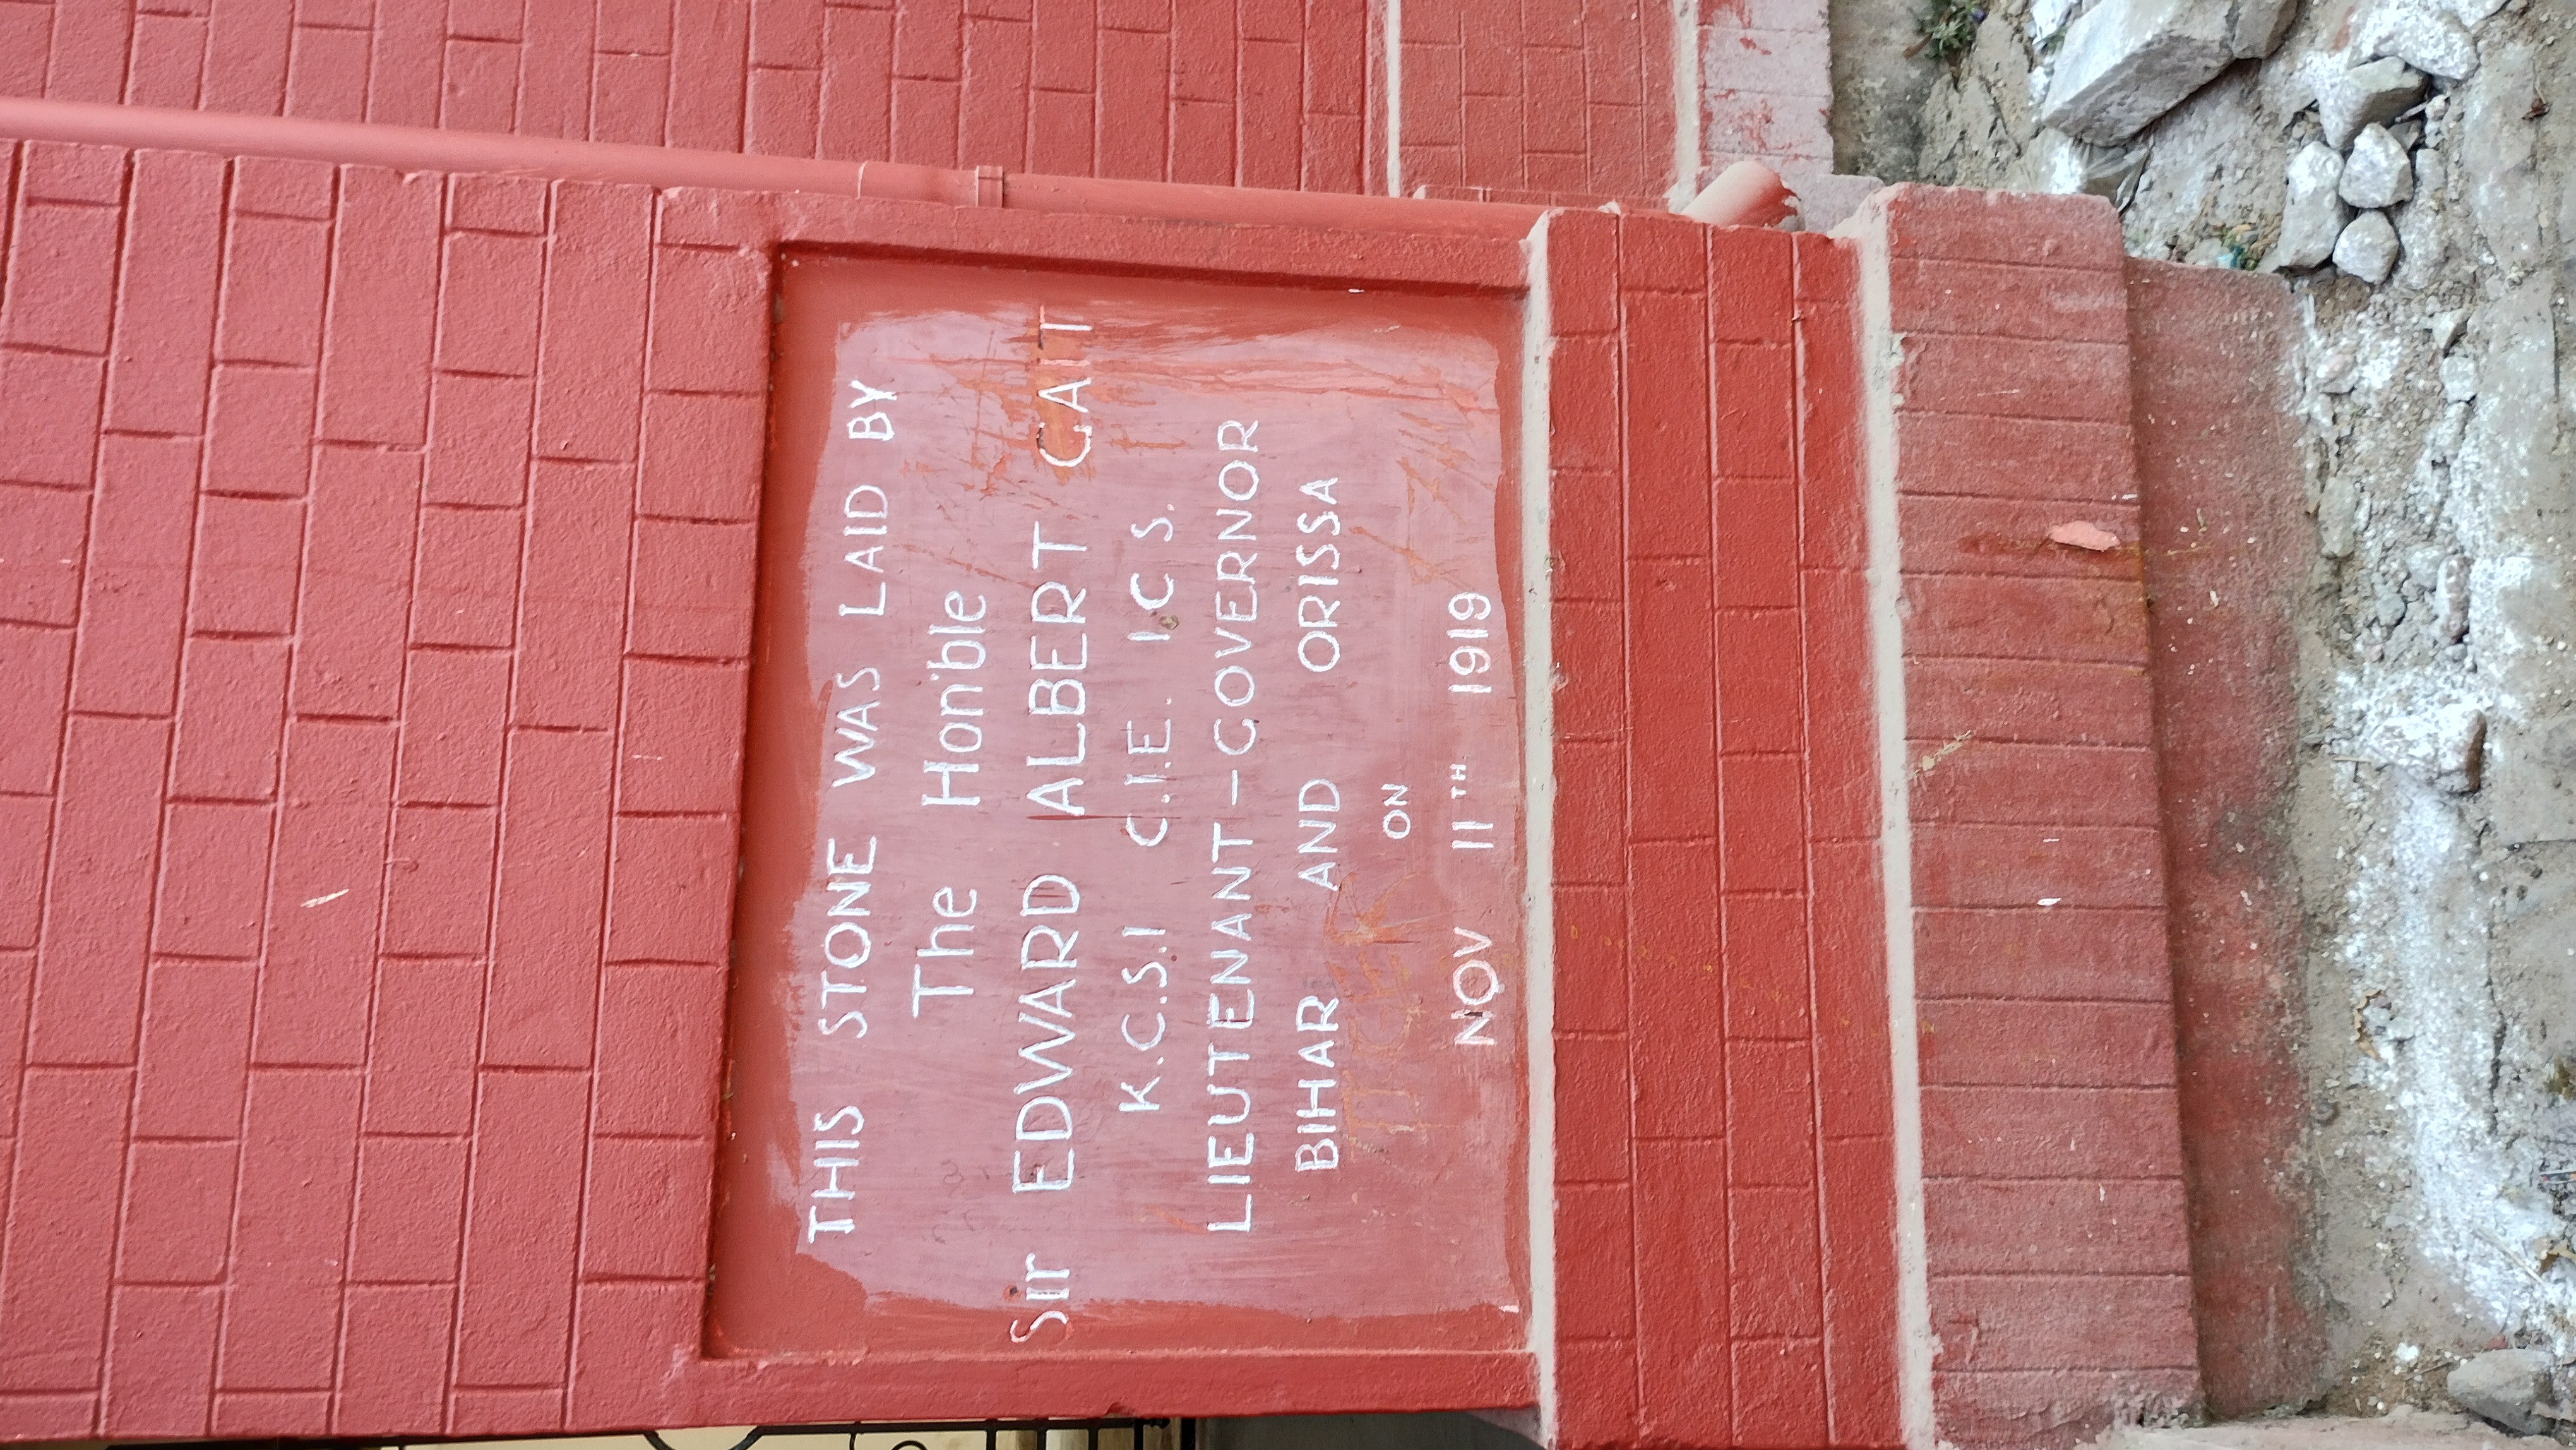 THIS STONE WAS LAID BY
The Hon'ble
Sir EDWARD ALBERT GAIT
K.C.S.I C.I.E. I.C S.
LIEUTENANT-GOVERNOR
BIHAR AND ORISSA
ON
NOV 11TH 1919
TIGER